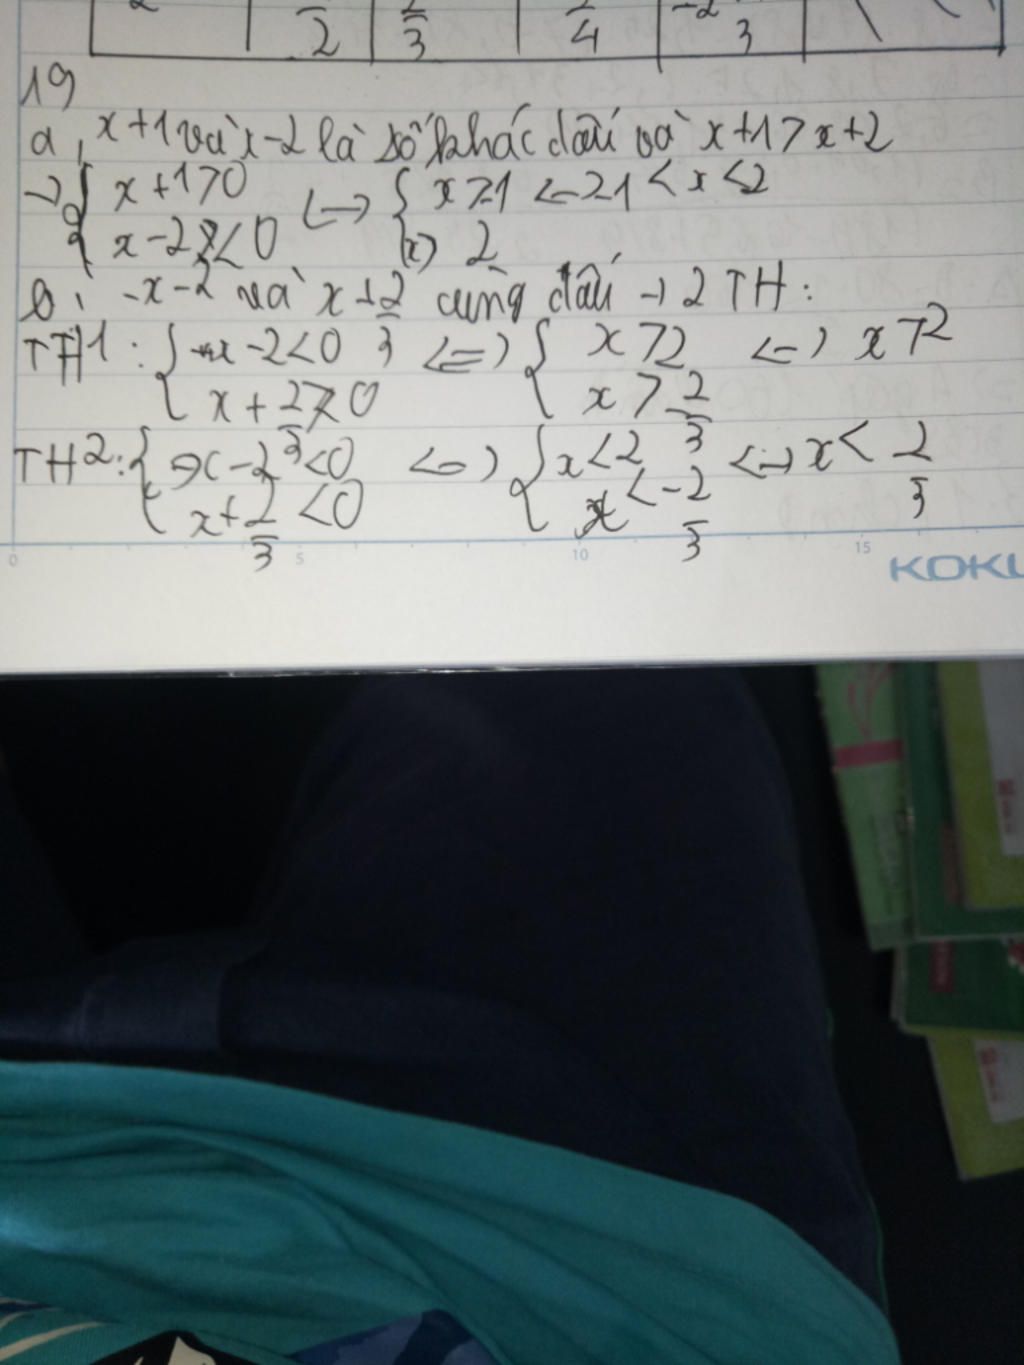 2 2/3 2/4 -2 3
19
a, x+1 và x-2 là số khác dấu và x+1 > x+2
→ { x+1>0 ↔ { x>-1 ↔ -1 < x < 2
{ x-2<0 { x > 2
b, -x-2 và x+2/3 cùng dấu → 2 TH:
TH1: { x-2<0 <=> { x>2 <=> x>2
{ x+2/3>0 { x>-2/3
TH2: { x-2<0 <=> { x<2 <=> x< 2/3
{ x+2/3<0 { x<-2/3
0 5 10 15
KOKU